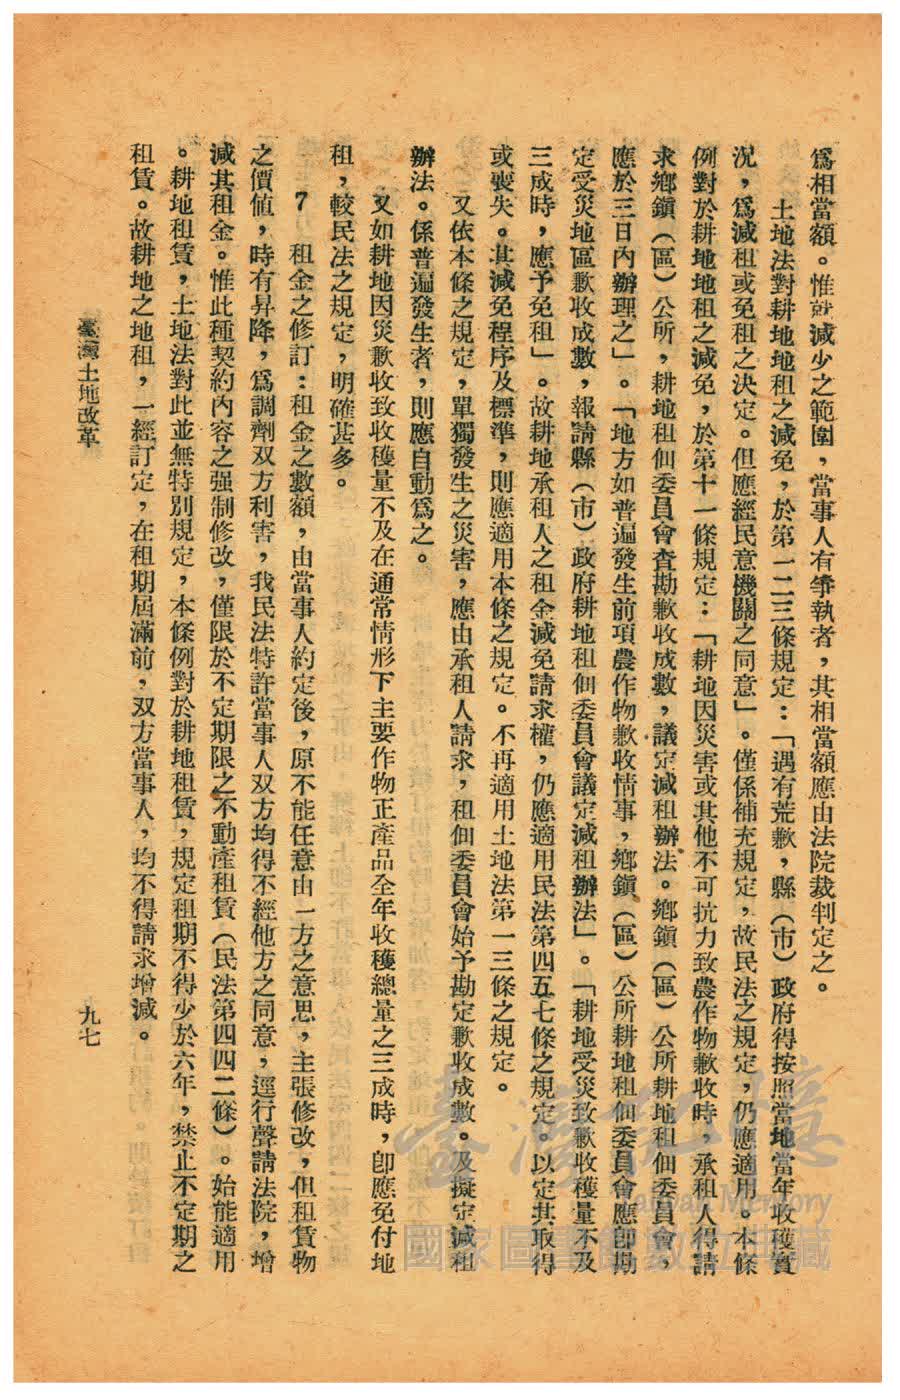 爲相當額。惟就減少之範圍，當事人有爭執者，其相當額應由法院裁判定之。
土地法對耕地地租之減免，於第一二三條規定：「遇有荒歉，縣（市）政府得按照當地當年收穫實
況，爲減租或免租之決定。但應經民意機關之同意」。僅係補充規定，故民法之規定，仍應適用。本條
例對於耕地地租之減免，於第十一條規定：「耕地因災害或其他不可抗力致農作物歉收時，承租人得請
求鄉鎮（區）公所，耕地租佃委員會查勘歉收成數，議定減租辦法。鄉鎮（區）公所耕地租佃委員會，
應於三日內辦理之」。「地方如普遍發生前項農作物歉收情事，鄉鎮（區）公所耕地租佃委員會應卽勘
定受災地區歉收成數，報請縣（市）政府耕地租佃委員會議定減租辦法」。「耕地受災致歉收穫量不及
三成時，應予免租」。故耕地承租人之租金減免請求權，仍應適用民法第四五七條之規定。以定其取得
或喪失。其減免程序及標準，則應適用本條之規定。不再適用土地法第一三條之規定。
又依本條之規定，單獨發生之災害，應由承租人請求，租佃委員會始予勘定歉收成數。及擬定減租
辦法。係普遍發生者，則應自動爲之。
又如耕地因災歉收致收穫量不及在通常情形下主要作物正產品全年收穫總量之三成時，卽應免付地
租，較民法之規定，明確甚多。
7　租金之修訂：租金之數額，由當事人約定後，原不能任意由一方之意思，主張修改，但租賃物
之價値，時有昇降，爲調劑双方利害，我民法特許當事人双方均得不經他方之同意，逕行聲請法院，增
減其租金。惟此種契約內容之强制修改，僅限於不定期限之不動產租賃（民法第四四二條）。始能適用
。耕地租賃，土地法對此並無特別規定，本條例對於耕地租賃，規定租期不得少於六年，禁止不定期之
租賃。故耕地之地租，一經訂定，在租期屆滿前，双方當事人，均不得請求增減。
臺灣土地改革
九七
臺灣記憶
Taiwan Memory
國家圖書館數位典藏